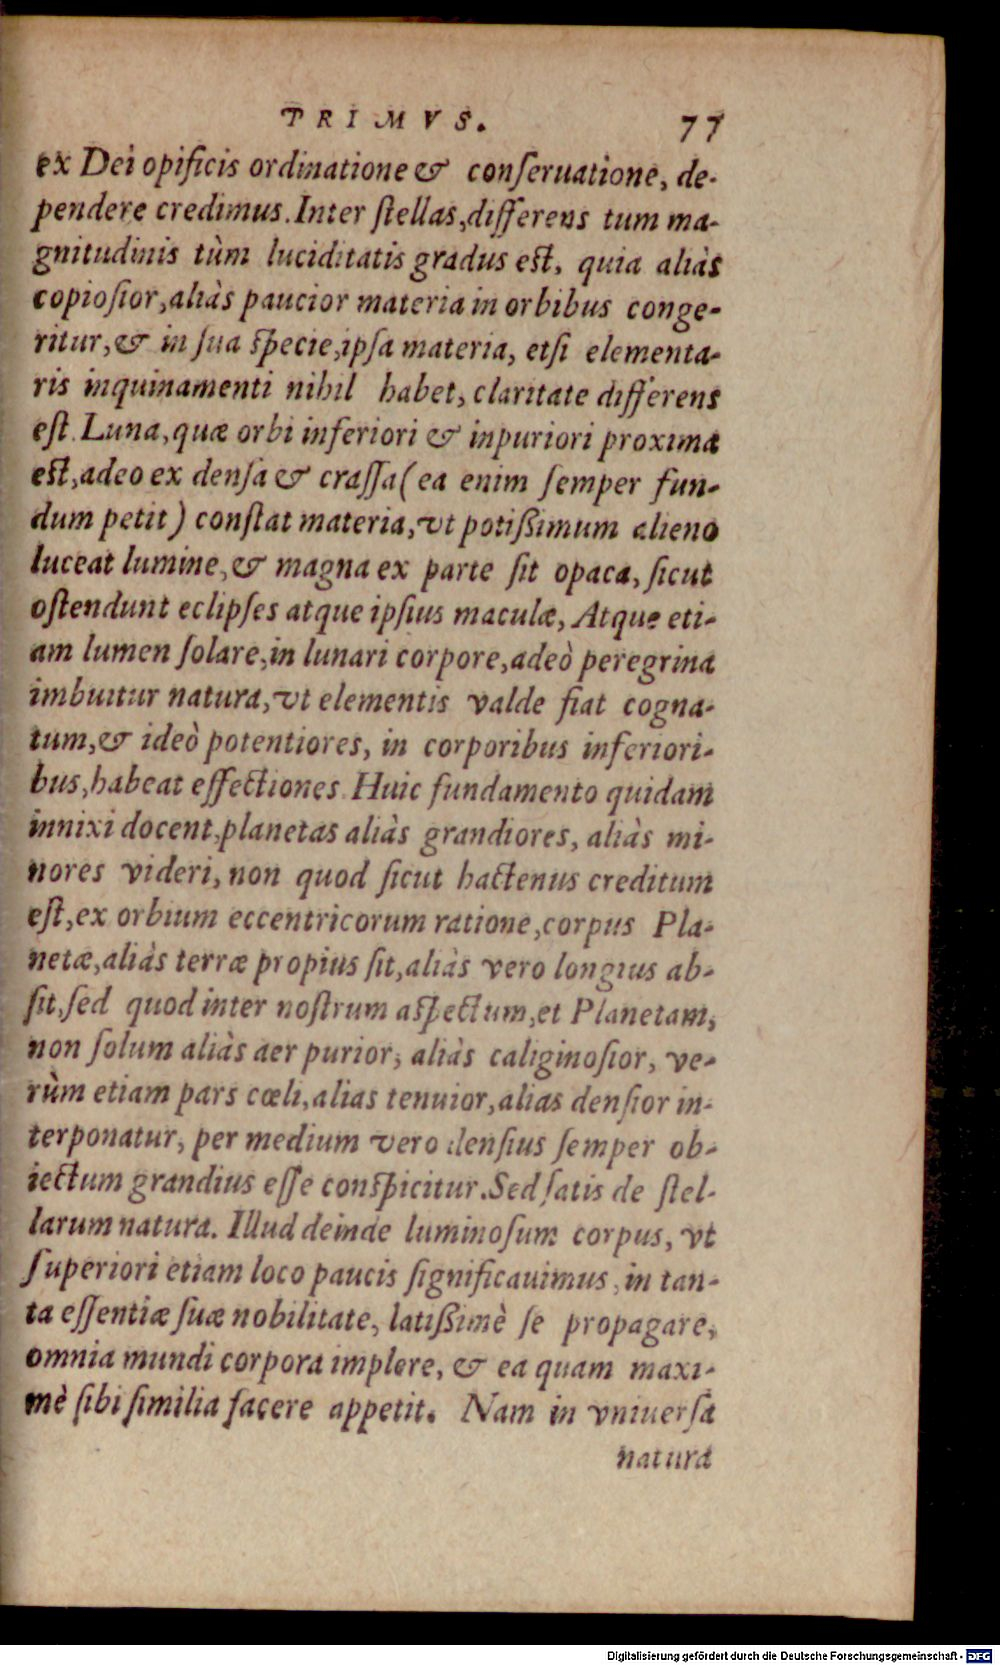 TRIMVS. 77
ex Dei opificis ordinatione & conſeruatione, de-
pendere credimus. Inter ſtellas, differens tum ma-
gnitudinis tùm luciditatis gradus eſt, quia aliàs
copioſior, aliàs paucior materia in orbibus conge-
ritur, & in ſua ſpecie, ipſa materia, etſi elementa-
ris inquinamenti nihil habet, claritate differens
eſt. Luna, quæ orbi inferiori & inpuriori proxima
eſt, adeo ex denſa & craſſa (ea enim ſemper fun-
dum petit) conſtat materia, vt potißimum alieno
luceat lumine, & magna ex parte ſit opaca, ſicut
oſtendunt eclipſes atque ipſius maculæ, Atque eti-
am lumen ſolare, in lunari corpore, adeò peregrina
imbuitur natura, vt elementis valde fiat cogna-
tum, & ideò potentiores, in corporibus inferiori-
bus, habeat effectiones. Huic fundamento quidam
innixi docent, planetas aliàs grandiores, aliàs mi-
nores videri, non quod ſicut hactenus creditum
eſt, ex orbium eccentricorum ratione, corpus Pla-
netæ, aliàs terræ propius ſit, aliàs vero longius ab-
ſit, ſed quod inter noſtrum aſpectum, et Planetam,
non ſolum aliàs aer purior, aliàs caliginoſior, ve-
rùm etiam pars cœli, alias tenuior, alias denſior in-
terponatur, per medium vero denſius ſemper ob-
iectum grandius eſſe conſpicitur. Sed ſatis de ſtel-
larum natura. Illud deinde luminoſum corpus, vt
ſuperiori etiam loco paucis ſignificauimus, in tan-
ta eſſentiæ ſuæ nobilitate, latißimè ſe propagare,
omnia mundi corpora implere, & ea quam maxi-
mè ſibi ſimilia facere appetit. Nam in vniuerſa
natura
Digitalisierung gefördert durch die Deutsche Forschungsgemeinschaft - DFG